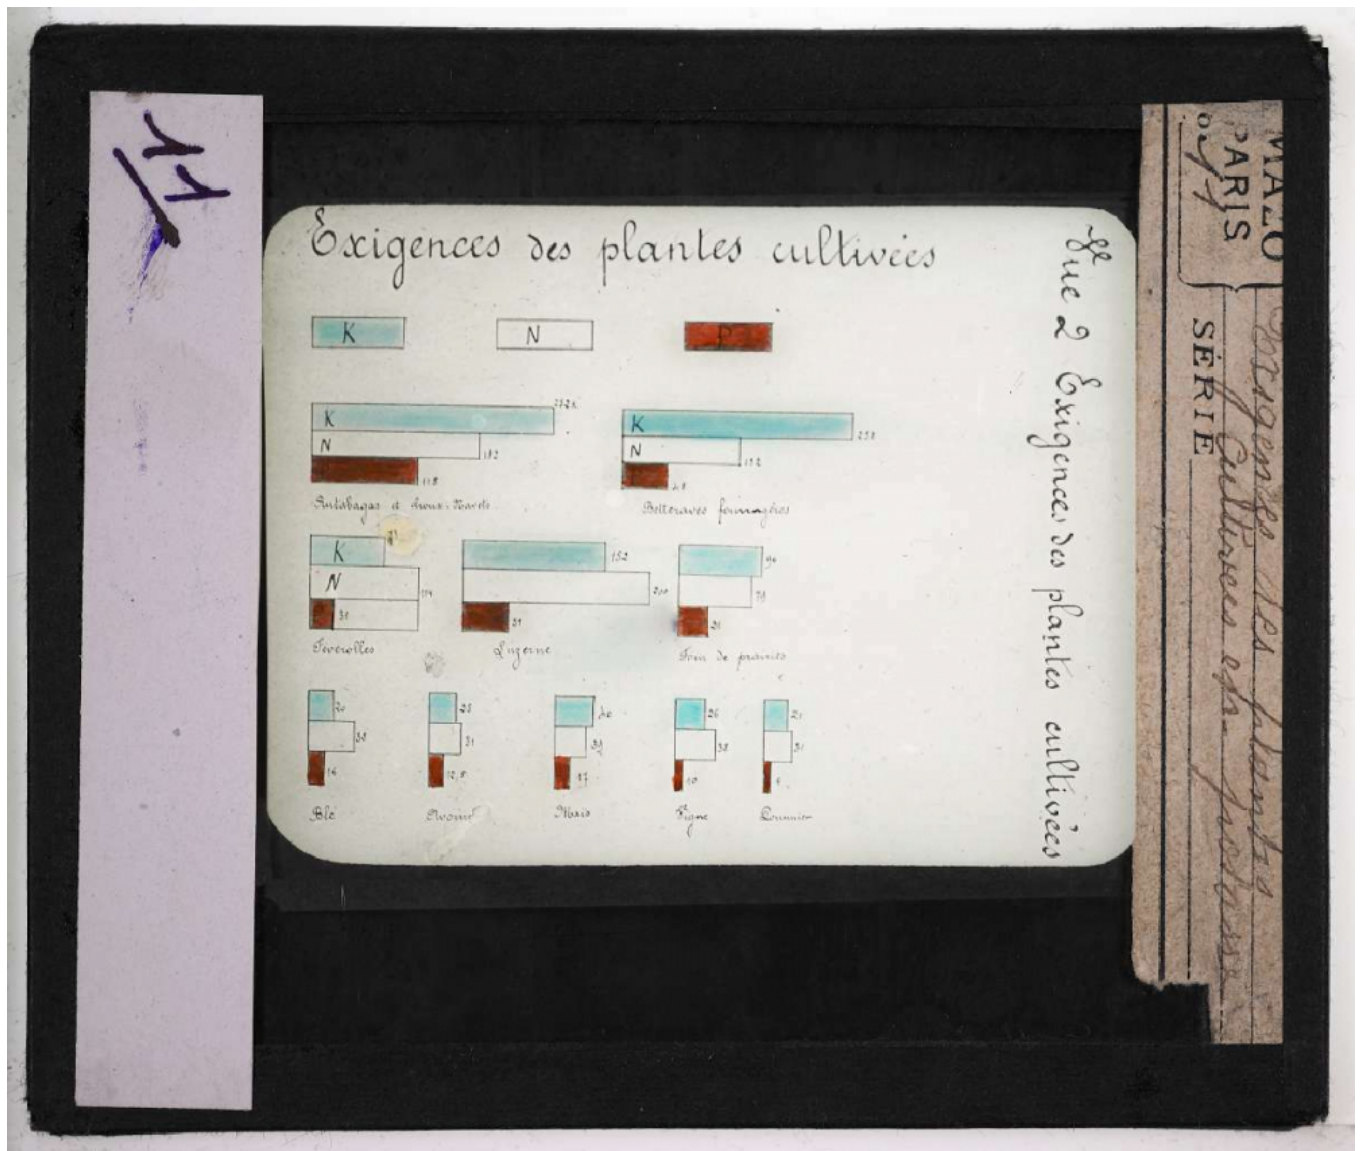 11
Exigences des plantes cultivées
K N P
K
N 182
118
Rutabagas et choux-Navets
K 258
N
Betteraves fourragères
K
N
Féverolles
152
200
Luzerne
90
Foin de prairies
16
Blé
31
12,5
Avoine
17
Maïs
26
38
10
Vigne
Pommier
Vue 2 Exigences des plantes cultivées
MAZO
PARIS
SÉRIE
Exigences des plantes
cultivées en potasse